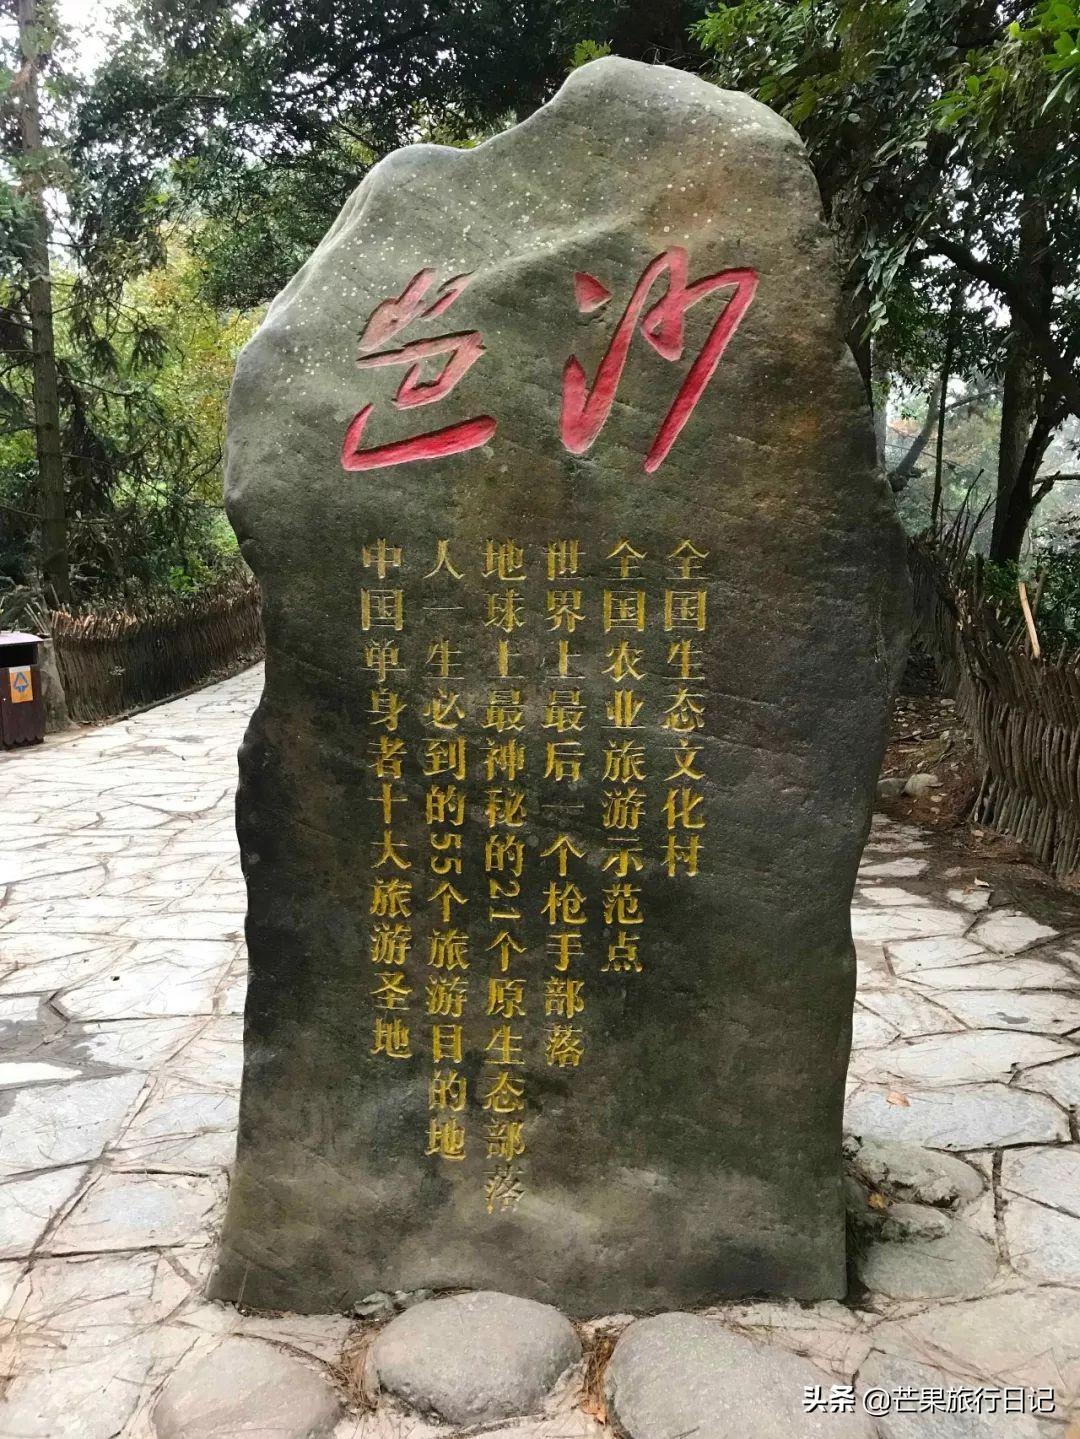 岜沙
全国生态文化村
全国农业旅游示范点
世界上最后一个枪手部落
地球上最神秘的21个原生态部落
人一生必到的55个旅游目的地
中国单身者十大旅游圣地
头条 @芒果旅行日记